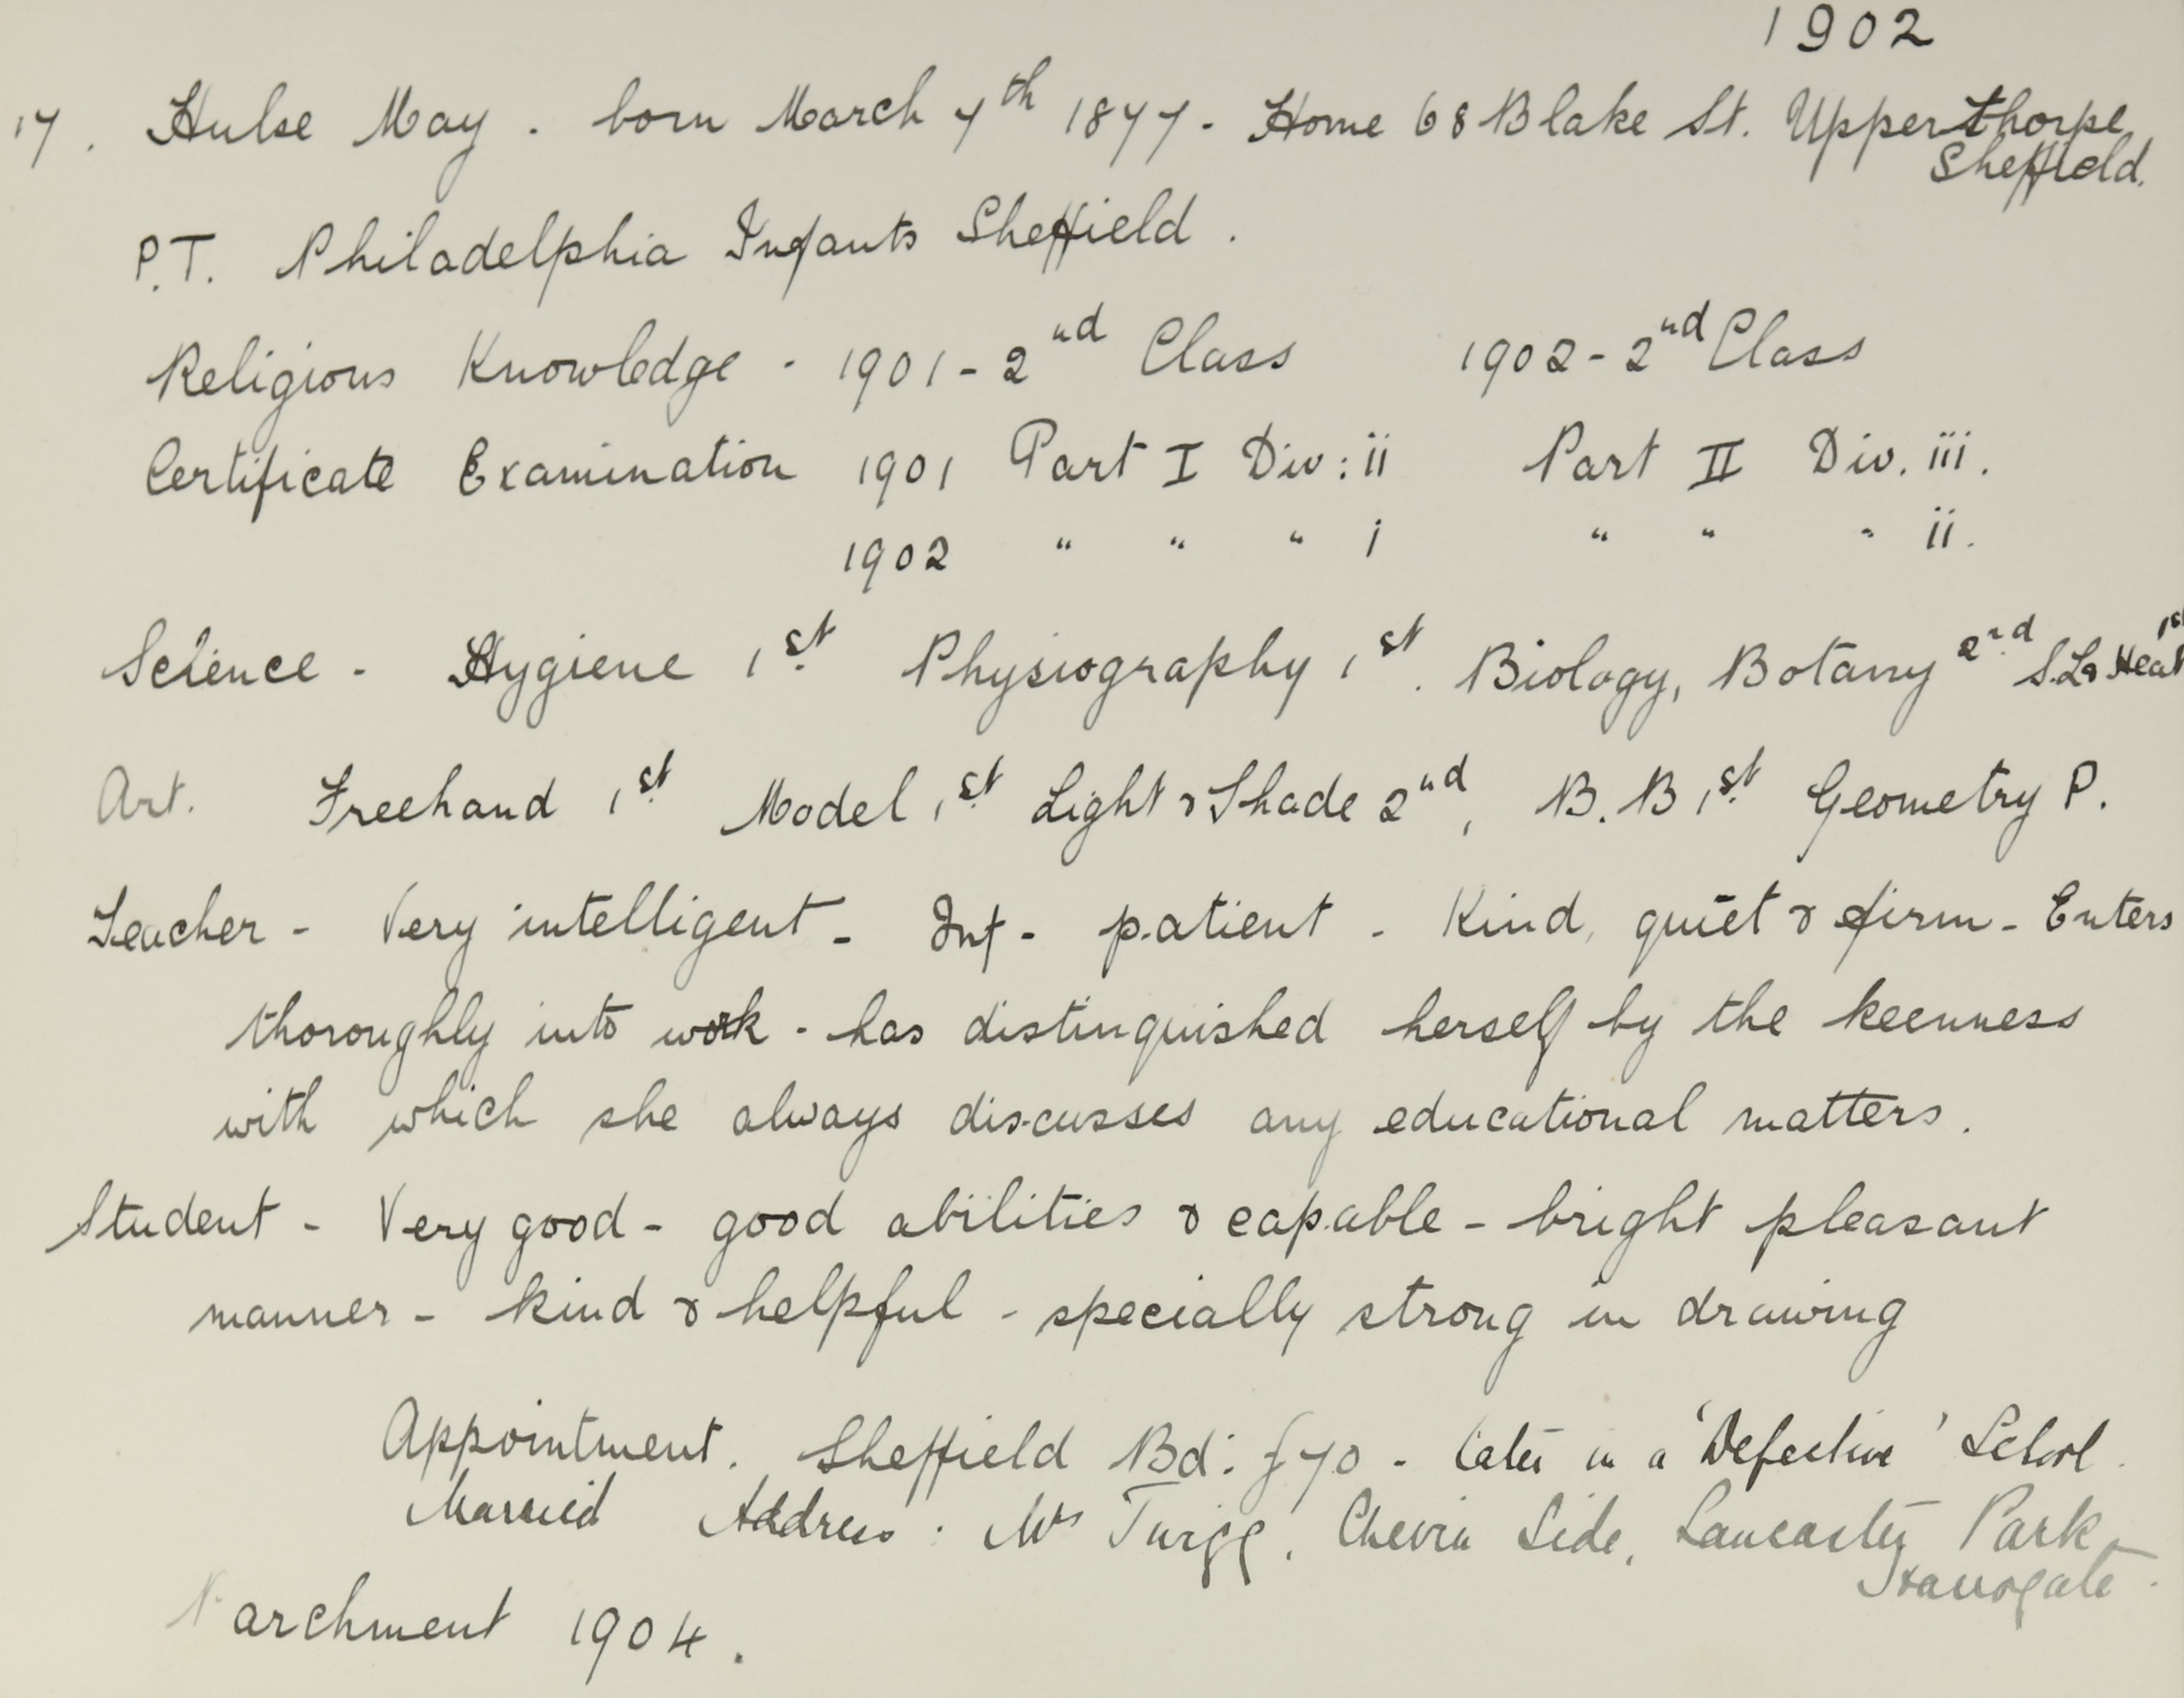 1902
17. Hulse May. born March 7th 1877 - Home 68 Blake St. Upperthorpe
Sheffield.
P.T. Philadelphia Infants Sheffield.
Religious Knowledge - 1901 - 2nd Class 1902 - 2nd Class
Certificate Examination 1901 Part I Div: ii Part II Div. iii.
1902 " " " i " " " ii.
Science - Hygiene 1st Physiography 1st. Biology, Botany 2nd S.L& Heat 1st
Art. Freehand 1st Model 1st Light & Shade 2nd, B.B 1st Geometry P.
Teacher - Very intelligent - Inf - patient - Kind, quiet & firm - Enters
thoroughly into work - has distinguished herself by the keenness
with which she always discusses any educational matters.
Student - Very good - good abilities & capable - bright pleasant
manner - kind & helpful - specially strong in drawing
Appointment. Sheffield Bd: £70 - later in a 'Defective' School.
Married Address: Mrs Twigg, Chevin Side, Lancaster Park
Harrogate.
Parchment 1904.